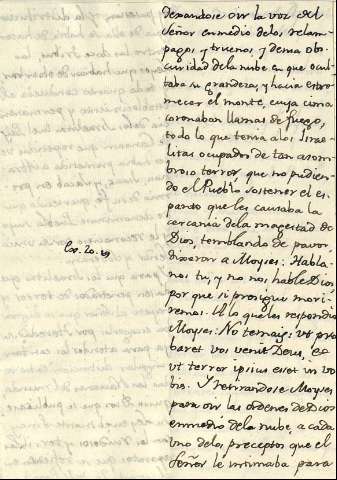 dexandose oir la voz del
Señor en medio delos relam-
pagos y truenos, y densa obs-
curidad dela nube en que ocul-
taba su grandeza, y hacia estre-
mecer el monte, cuya cima
coronaban llamas de fuego,
todo lo que tenia alos Israe-
litas ocupados de tan asom-
broso terror, que no pudien-
do el Pueblo sostener el es-
panto que les causaba la
cercania dela magestad de
Dios, temblando de pavor
dixeron a Moyses: Habla-
nos tu, y no nos hable Dios
por que si prosigue mori-
remos. A lo que les respondio
Moyses: No temais: ut pro
baret vos venit Deus, et
ut terror ipsius esset in vo
bis. Y retirandose Moyses
para oir las ordenes de Dios
en medio dela nube, a cada
uno delos preceptos que el
Señor le intimaba para
Ex. 20.